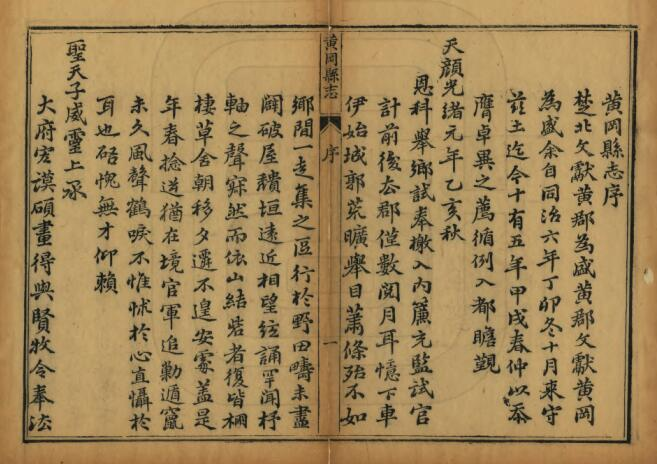 黄岡縣志序
楚北文獻黄郡為盛黄郡文獻黄岡
為盛余自同治六年丁卯冬十月来守
兹土迄今十有五年甲戌春仲以忝
膺卓異之薦循例入都瞻覲
天顔光緒元年乙亥秋
恩科舉鄉試奉檄入内簾充監試官
計前後去郡僅數閱月耳憶下車
伊始城郭荒曠舉目蕭條殆不如
黄岡縣志
序
一
鄉間一走集之區行於野田疇未盡
闢破屋穨垣遠近相望弦誦罕聞杼
軸之聲寂然而依山結砦者復皆棚
棲草舍朝移夕遷不遑安處蓋是
年春捻逆猶在境官軍追勦遁竄
未久風聲鶴唳不惟怵於心直懾於
耳也硞愧無才仰賴
聖天子威靈上承
大府宏謨碩畫得與賢牧令奉法